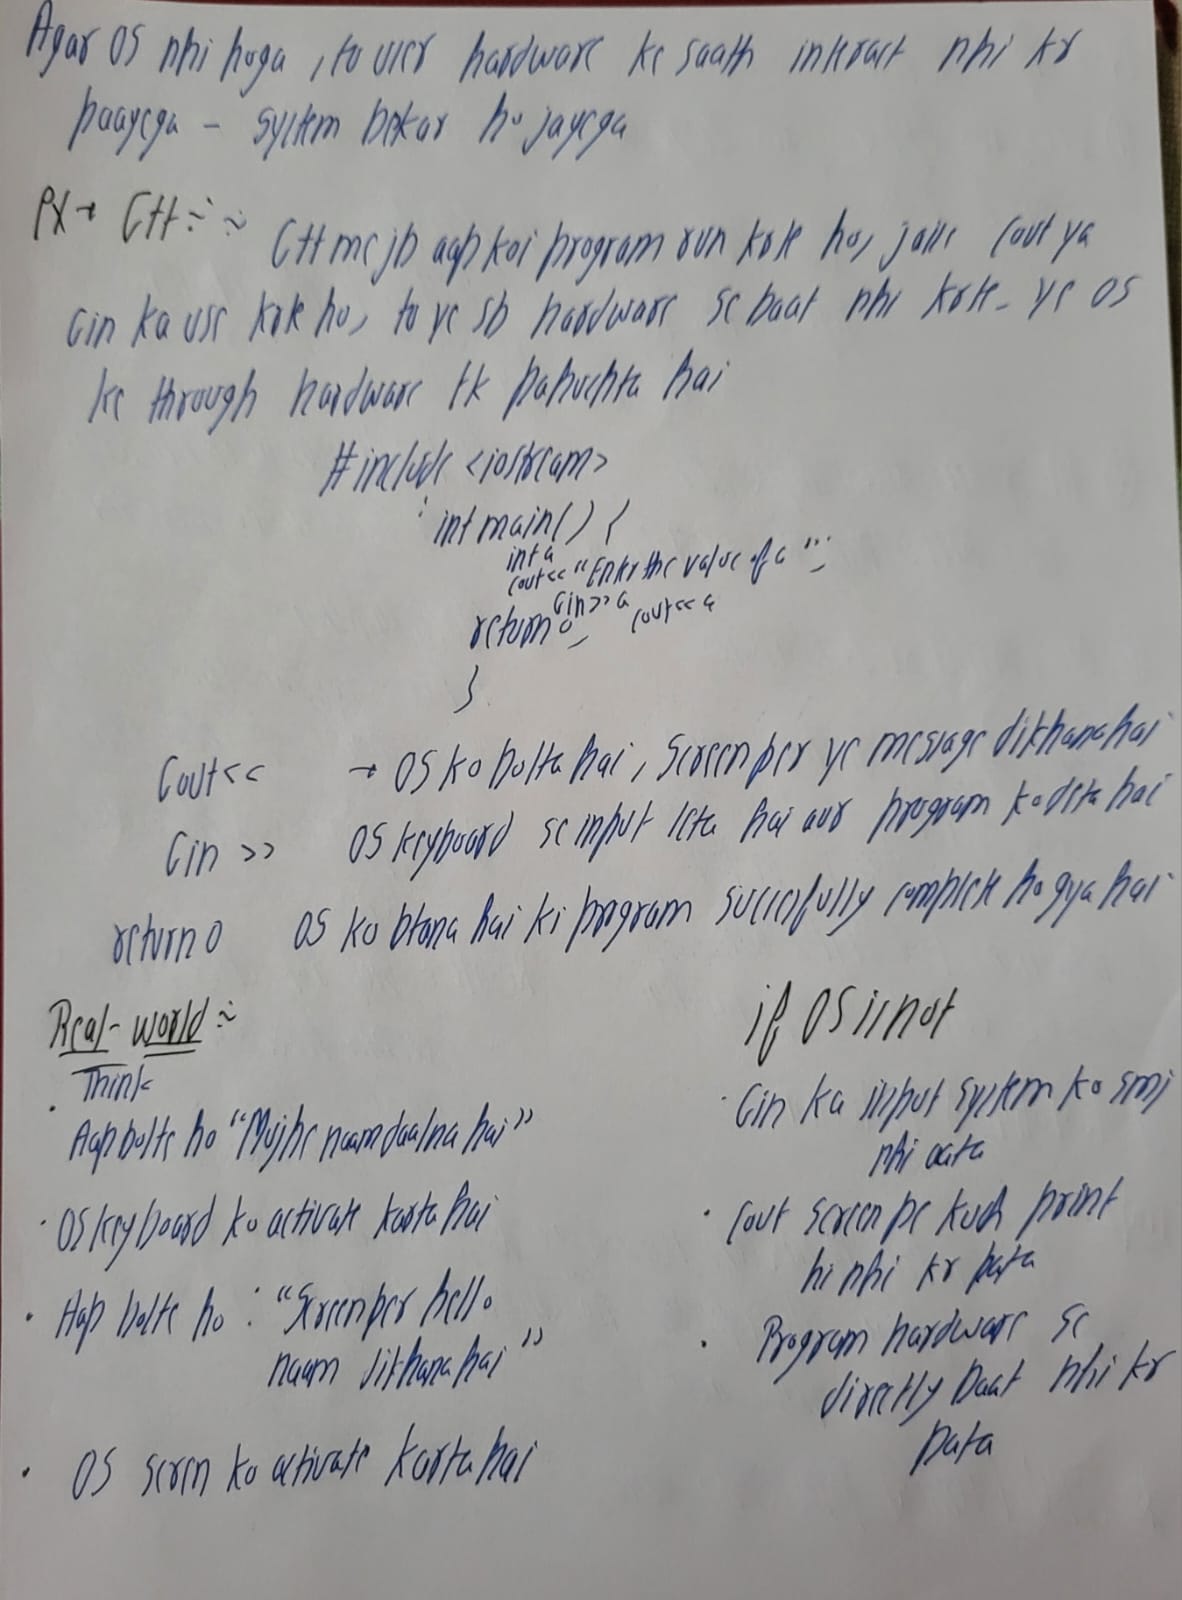 Agar OS nhi hoga , to user hardware ke saath interact nhi kr
paayega - system bekar ho jayega
EX → C++ :~
C++ me jb aap koi program run krte ho, jaise cout ya
Cin ka use krte ho, to ye sb hardware se baat nhi krte - ye OS
ke through hardware tk pahuchta hai
#include <iostream>
int main() {
int a
cout<< "Enter the value of a ";
Cin>>a
return 0; cout<< a
}
Cout<< → OS ko bolta hai, Screen per ye message dikhana hai
Cin >> OS keyboard se input leta hai aur program ko deta hai
return 0 OS ko btana hai ki program successfully complete ho gya hai
Real-world :~ if OS is not
Think
• Aap bolte ho "Mujhe naam daalna hai"
• OS keyboard ko activate karta hai
• Aap bolte ho : "Screen per hello
naam dikhana hai"
• OS screen ko activate karta hai
• Cin ka input system ko smj
nhi aata
• Cout screen pe kuch print
hi nhi kr pata
• Program hardware se
directly baat nhi kr
pata